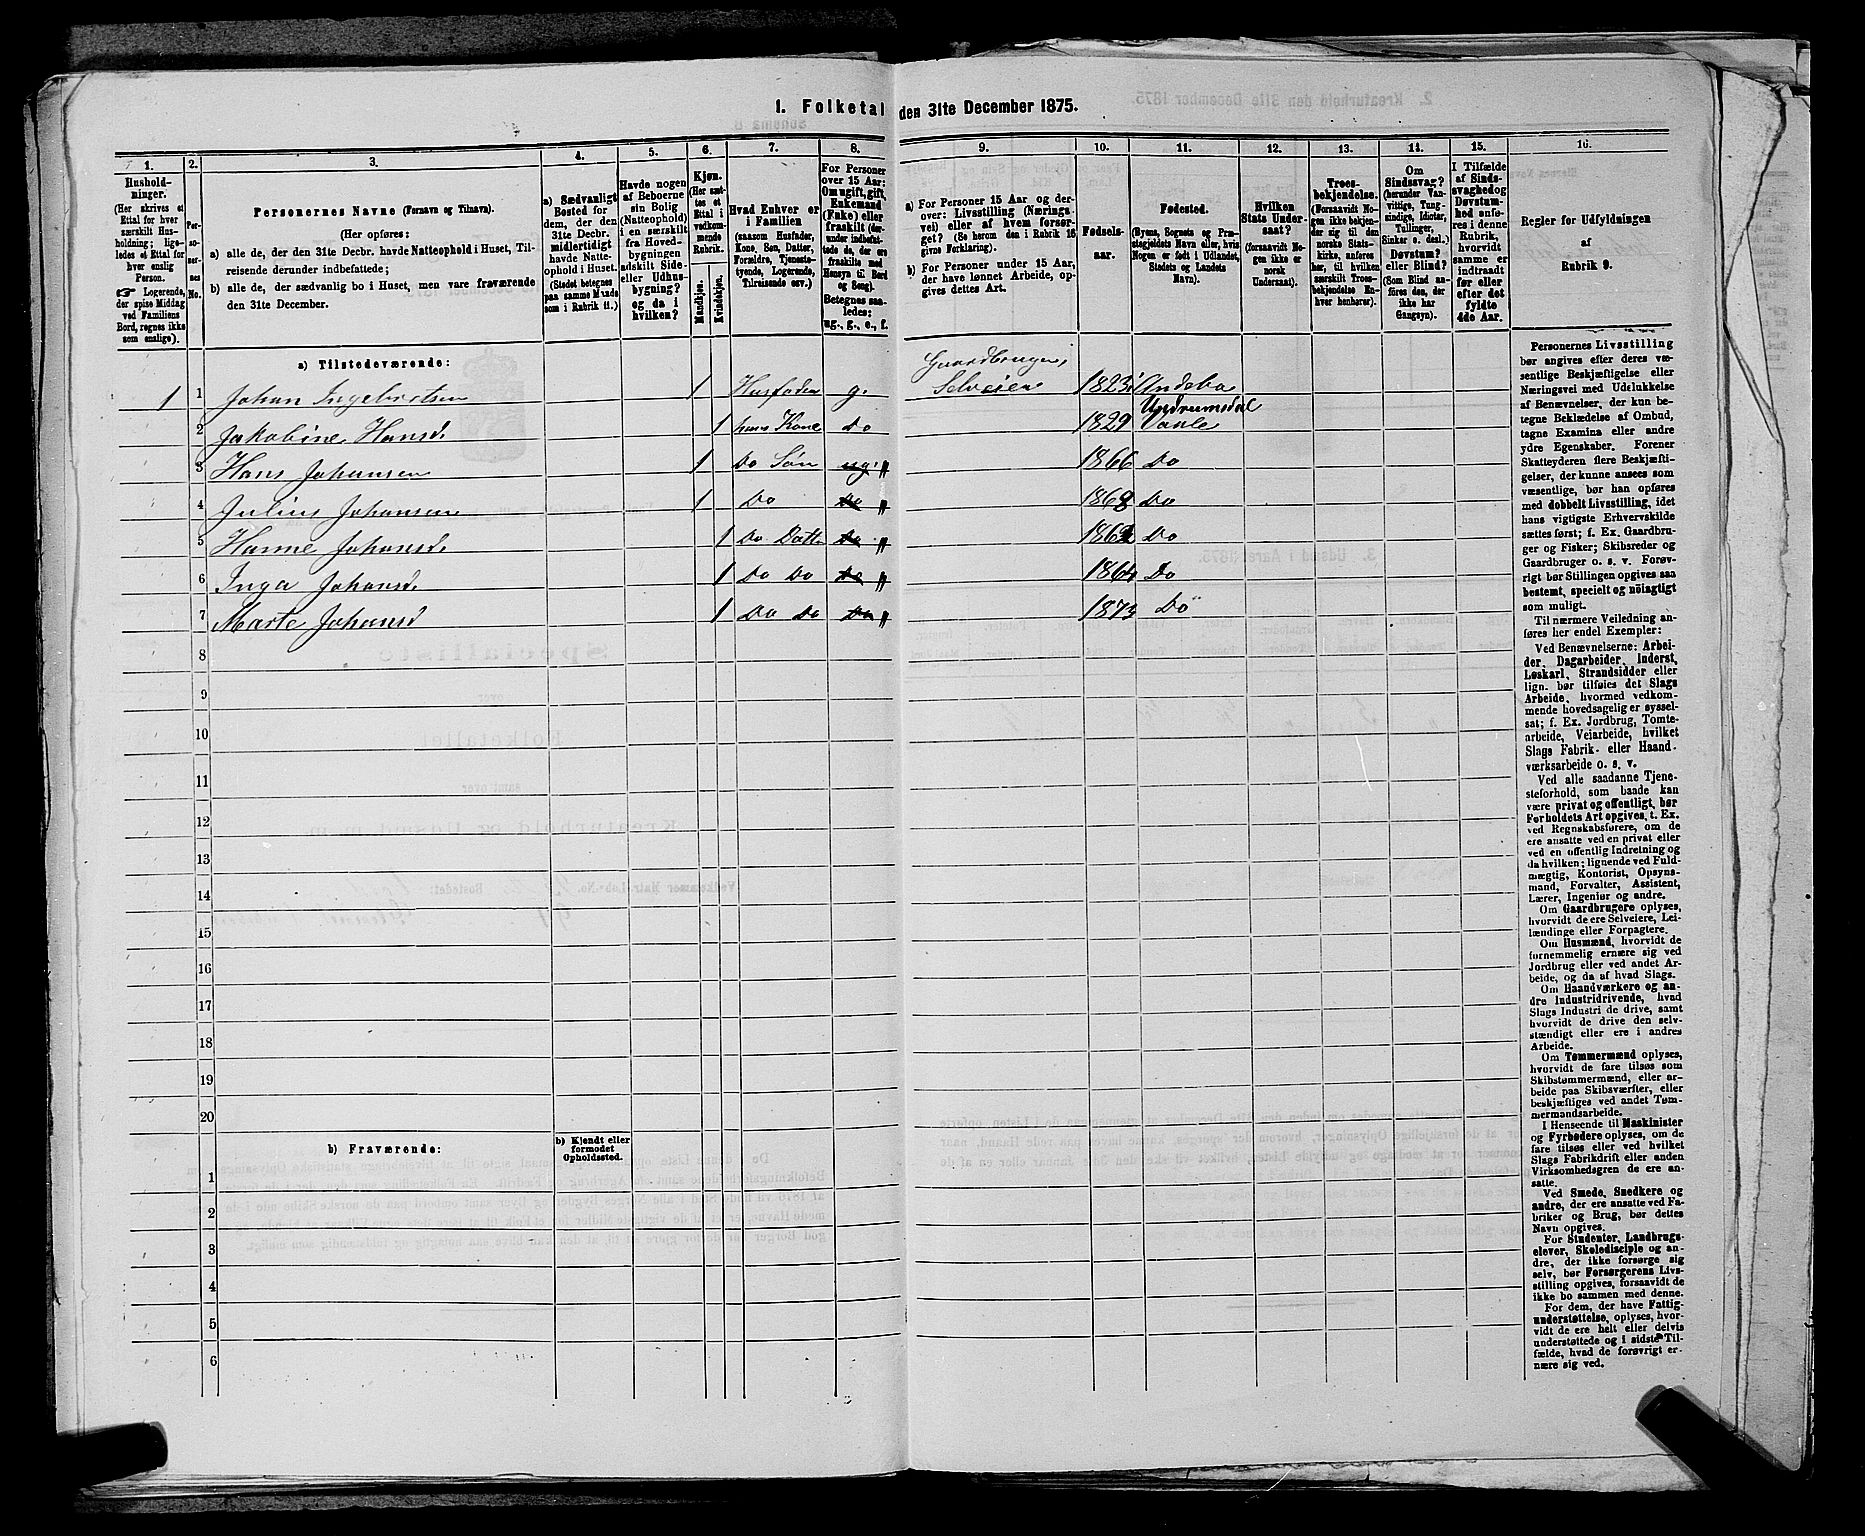 1. Folketal den 31te December 1875.
1. 2. 3. 4. 5. 6. 7. 8. 9. 10. 11. 12. 13. 14. 15. 16.
Hushold-
ninger.
(Her skrives et
Ettal for hver
særskilt Hus-
holdning; lige-
ledes et Ettal for
hver enslig
Person.
☞ Logerende,
der spise Middag
ved Familiens
Bord, regnes ikke
som enslige).
Per-
so-
ner-
nes
No.
Personernes Navne (Fornavn og Tilnavn).
(Her opføres:
a) alle de, der den 31te Decbr. havde Natteophold i Huset, Til-
reisende derunder indbefattede;
b) alle de, der sædvanlig bo i Huset, men vare fraværende
den 31te December.
a) Sædvanligt
Bosted for
dem, der den
31te Decbr.
midlertidigt
havde Natte-
ophold i Huset.
(Stedet betegnes
paa samme Maade
som i Rubrik 11.)
Havde nogen
af Beboerne
sin Bolig
(Natteophold)
i en særskilt
fra Hoved-
bygningen
adskilt Side-
eller Udhus-
bygning?
og da i
hvilken?
Kjøn.
(Her sæt-
tes et
Ettal i
vedkom-
mende
Rubrik.
Mandkjøn.
Kvindekjøn.
Hvad Enhver er
i Familien
(saasom Husfader,
Kone, Søn, Datter,
Forældre, Tjeneste-
tyende, Logerende,
Tilreisende osv.)
For Personer
over 15 Aar:
Om ugift, gift,
Enkemand
(Enke) eller
fraskilt (der-
under indbefat-
tede de, der ere
fraskilte med
Hensyn til Bord
og Seng).
Betegnes saa-
ledes:
ug., g., e., f.
a) For Personer 15 Aar og der-
over: Livsstilling (Nærings-
vei) eller af hvem forsør-
get? (Se herom den i Rubrik 16
givne Forklaring).
b) For Personer under 15 Aar,
der have lønnet Arbeide, op-
gives dettes Art.
Fødsels-
aar.
Fødested.
(Byens, Sognets og Præ-
stegjeldets Navn eller, hvis
Nogen er født i Udlandet,
Stedets og Landets
Navn).
Hvilken
Stats Under-
saat?
(forsaavidt No-
gen ikke er
norsk
Undersaat).
Troes-
bekjendelse.
(Forsaavidt No-
gen ikke bekjen-
der sig til den
norske Stats-
kirke, anføres
her, til hvilken
særskilt Troes-
bekjendelse En-
hver henhører).
Om
Sindssvag?
(herunder Van-
vittige, Tung-
sindige, Idioter,
Tullinger,
Sinker o. desl.)
Døvstum?
eller Blind?
(Som Blind an-
føres den, der
ikke har
Gangsyn).
I Tilfælde
af Sinds-
svaghed og
Døvstum-
hed anfø-
res i denne
Rubrik,
hvorvidt
samme er
indtraadt
før eller
efter det
fyldte
4de Aar.
Regler for Udfyldningen
af
Rubrik 9.
a) Tilstedeværende:
Gaardbruger,
1 1 Johan Ingebretsen 1 Husfader g. Selveier 1823 Andebo
Undrumsdal
2 Jakobine Hansd. 1 hans Kone do 1829 Vaale
3 Hans Johansen 1 Do Søn ug. " 1866 Do
4 Julius Johansen 1 Do Do " 1868 Do
5 Hanne Johansd. 1 Do Datt. Do " 1861 Do
6 Inga Johansd. 1 Do Do Do " 1864 Do
7 Marte Johansd 1 Do Do Do " 1873 Do
8
9
10
11
12
13
14
15
16
17
18
19
20
b) Fraværende:
b) Kjendt eller
formodet
Opholdssted.
1
2
3
4
5
6
Personernes Livsstilling
bør angives efter deres væ-
sentlige Beskjæftigelse eller
Næringsvei med Udelukkelse
af Benævnelser, der kun be-
tegne Beklædelse af Ombud,
tagne Examina eller andre
ydre Egenskaber. Forener
Skatteyderen flere Beskjæfti-
gelser, der kunne ansees som
væsentlige, bør han opføres
med dobbelt Livsstilling, idet
hans vigtigste Erhvervskilde
sættes først; f. Ex. Gaardbru-
ger og Fisker; Skibsreder og
Gaardbruger o. s. v. Forøv-
rigt bør Stillingen opgives saa
bestemt, specielt og nøiagtigt
som muligt.
Til nærmere Veiledning an-
føres her endel Exempler:
Ved Benævnelserne: Arbei-
der, Dagarbeider, Inderst,
Løskarl, Strandsidder eller
lign. bør tilføies det Slags
Arbeide, hvormed vedkom-
mende hovedsagelig er syssel-
sat; f. Ex. Jordbrug, Tomte-
arbeide, Veiarbeide, hvilket
Slags Fabrik- eller Haand-
værksarbeide o. s. v.
Ved alle saadanne Tjene-
steforhold, som baade kan
være privat og offentligt, bør
Forholdets Art opgives, t. Ex.
ved Regnskabsførere, om de
ere ansatte ved en privat eller
ved en offentlig Indretning og
da hvilken; lignende ved Fuld-
mægtig, Kontorist, Opsyns-
mand, Forvalter, Assistent,
Lærer, Ingeniør og andre.
Om Gaardbrugere oplyses,
hvorvidt de ere Selveiere, Lei-
lændinge eller Forpagtere.
Om Husmænd, hvorvidt de
fornemmelig ernære sig ved
Jordbrug eller ved andet Ar-
beide, og da af hvad Slags.
Om Haandværkere og an-
dre Industridrivende, hvad
Slags Industri de drive, samt
hvorvidt de drive den selv-
stændigt eller ere i andres
Arbeide.
Om Tømmermænd oplyses,
hvorvidt de fare tilsøs som
Skibstømmermænd, eller ar-
beide paa Skibsværfter, eller
beskjæftiges ved andet Tøm-
mermandsarbeide.
I Henseende til Maskinister
og Fyrbødere oplyses, om de
fare tilsøs eller ved hvilket
Slags Fabrikdrift eller anden
Virksomhedsgren de ere an-
satte.
Ved Smede, Snedkere og
andre, der ere ansatte ved Fa-
briker og Brug, bør dettes
Navn opgives.
For Studenter, Landbrugs-
elever, Skoledisciple og an-
dre, der ikke forsørge sig
selv, bør Forsørgerens Livs-
stilling opgives, forsaavidt de
ikke bo sammen med denne.
For dem, der have Fattig-
understøttelse, oplyses, hvor-
vidt de ere helt eller delvis
understøttede og i sidste Til-
fælde, hvad de forøvrigt er-
nære sig ved.